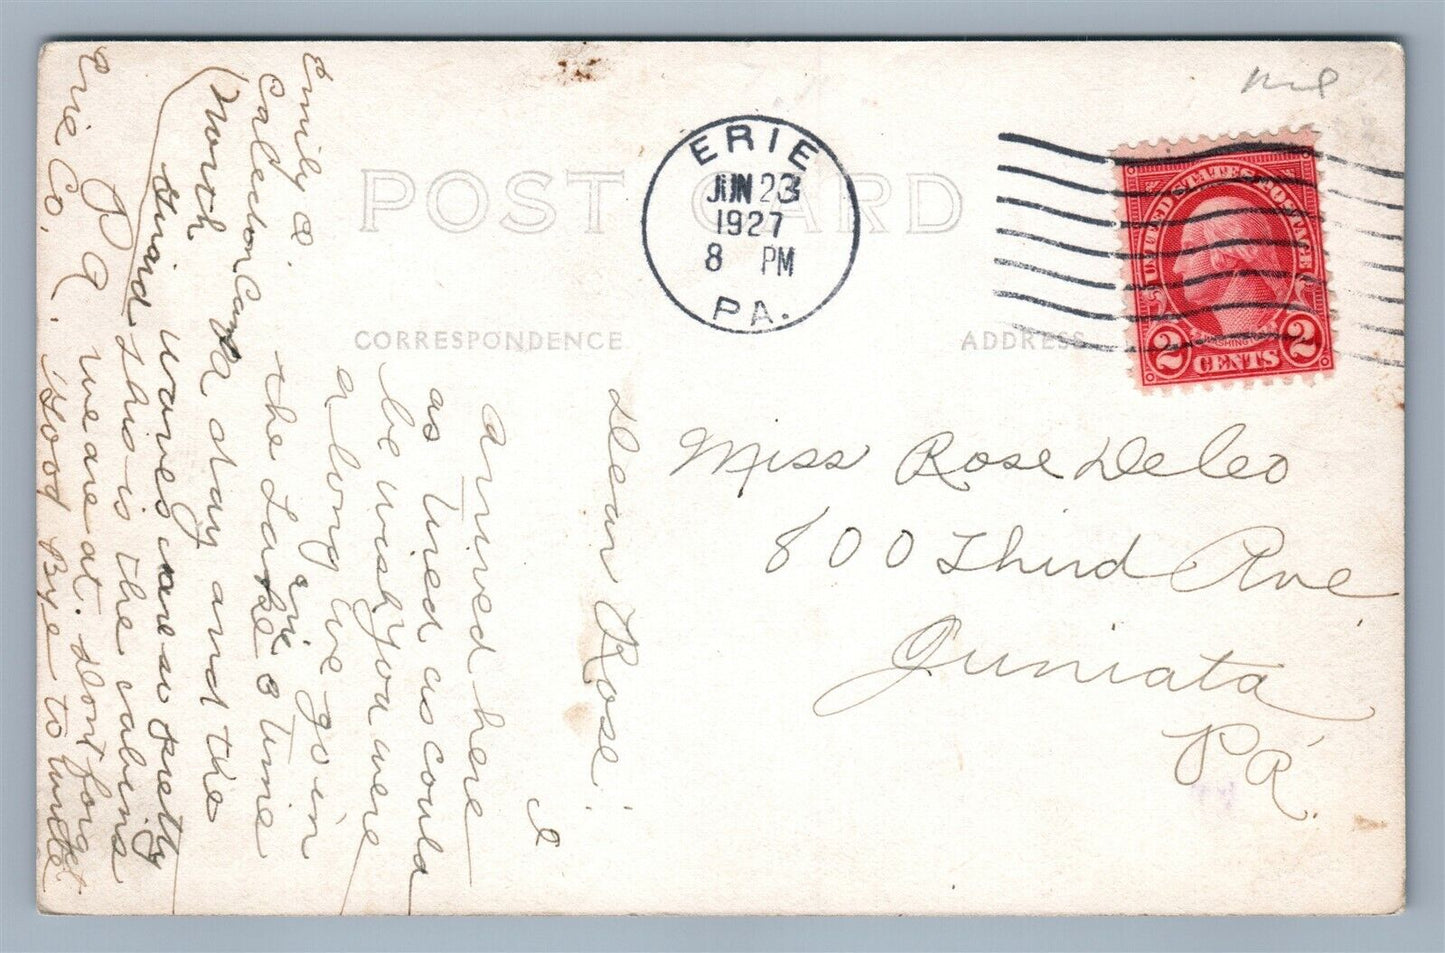 ERIE
JUN 23
1927
8 PM
PA.
POST CARD
CORRESPONDENCE
ADDRESS
UNITED STATES POSTAGE
WASHINGTON
2 CENTS 2
Miss Rose DeLeo
800 Third Ave
Juniata
PA.
Dear Rose. I
arrived here
as tired as could
be wish you were
along we go in
the Lake Erie 3 time
a day and the
waves are so pretty
this is the cabins
we are at. dont forget
Good Bye to write
Emily D.
Camp
North
Girard
P A.
Erie Co.